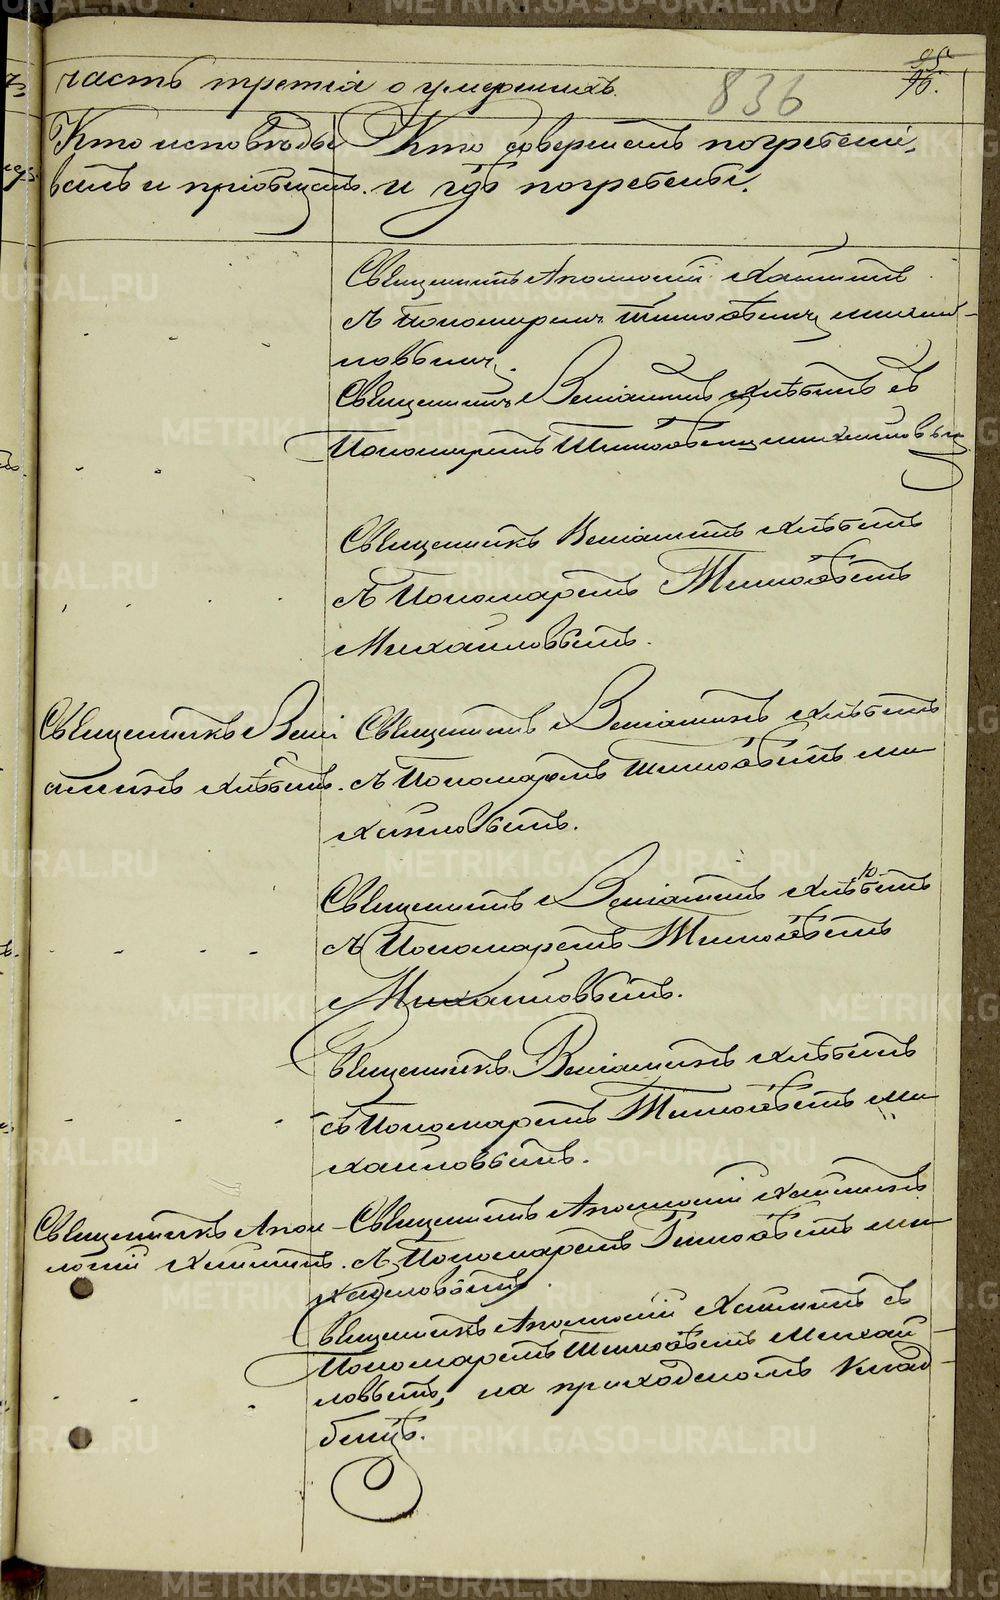 95
96.
часть третія о умершихъ.
836
Кто исповѣды
валъ и пріобщалъ.
Кто совершалъ погребеніе,
и гдѣ погребены.
Священникъ Аполлоній
съ Пономаремъ Тимоѳеемъ Михай-
ловымъ.
Священникъ Веніаминъ съ
Пономаремъ Тимоѳеемъ Михайловымъ
Священникъ Веніаминъ
съ Пономаремъ Тимоѳеемъ
Михайловымъ.
Священникъ Вені
аминъ
Священникъ Веніаминъ
съ Пономаремъ Тимоѳеемъ Ми
хайловымъ.
Священникъ Веніаминъ
съ Пономаремъ Тимоѳеемъ
Михайловымъ.
Священникъ Веніаминъ
съ Пономаремъ Тимоѳеемъ Ми
хайловымъ.
Священникъ Апол
лоній
Священникъ Аполлоній
съ Пономаремъ Тимоѳеемъ Ми
хайловымъ.
Священникъ Аполлоній съ
Пономаремъ Тимоѳеемъ Михай
ловымъ, на приходскомъ клад-
бищѣ.
METRIKI.GASO-URAL.RU